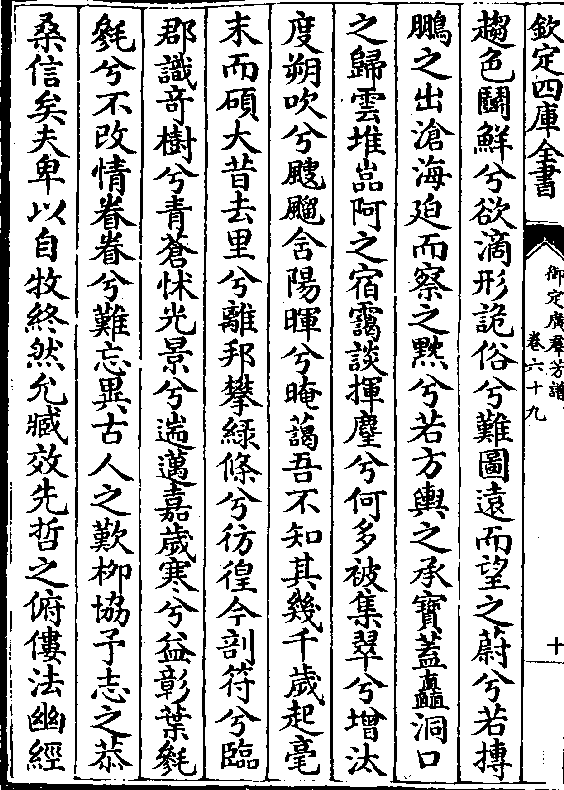 欽定四庫全書
御定廣羣芳譜
卷六十九
十
趨色鬭鮮兮欲滴形詭俗兮難圖遠而望之蔚兮若摶
鵬之出滄海廹而察之黙兮若方輿之承寶蓋矗洞口
之歸雲堆嵓阿之宿靄談揮麈兮何多被集翠兮增汰
度朔吹兮颼飀舍陽暉兮晻藹吾不知其幾千歲起毫
末而碩大昔去里兮離邦攀緑條兮彷徨今剖符兮臨
郡識竒樹兮青蒼怵光景兮遄邁嘉歲寒兮益彰葉毿
毿兮不改情眷眷兮難忘異古人之歎栁協予志之㳟
桑信矣夫卑以自牧終然允臧效先哲之俯僂法幽經